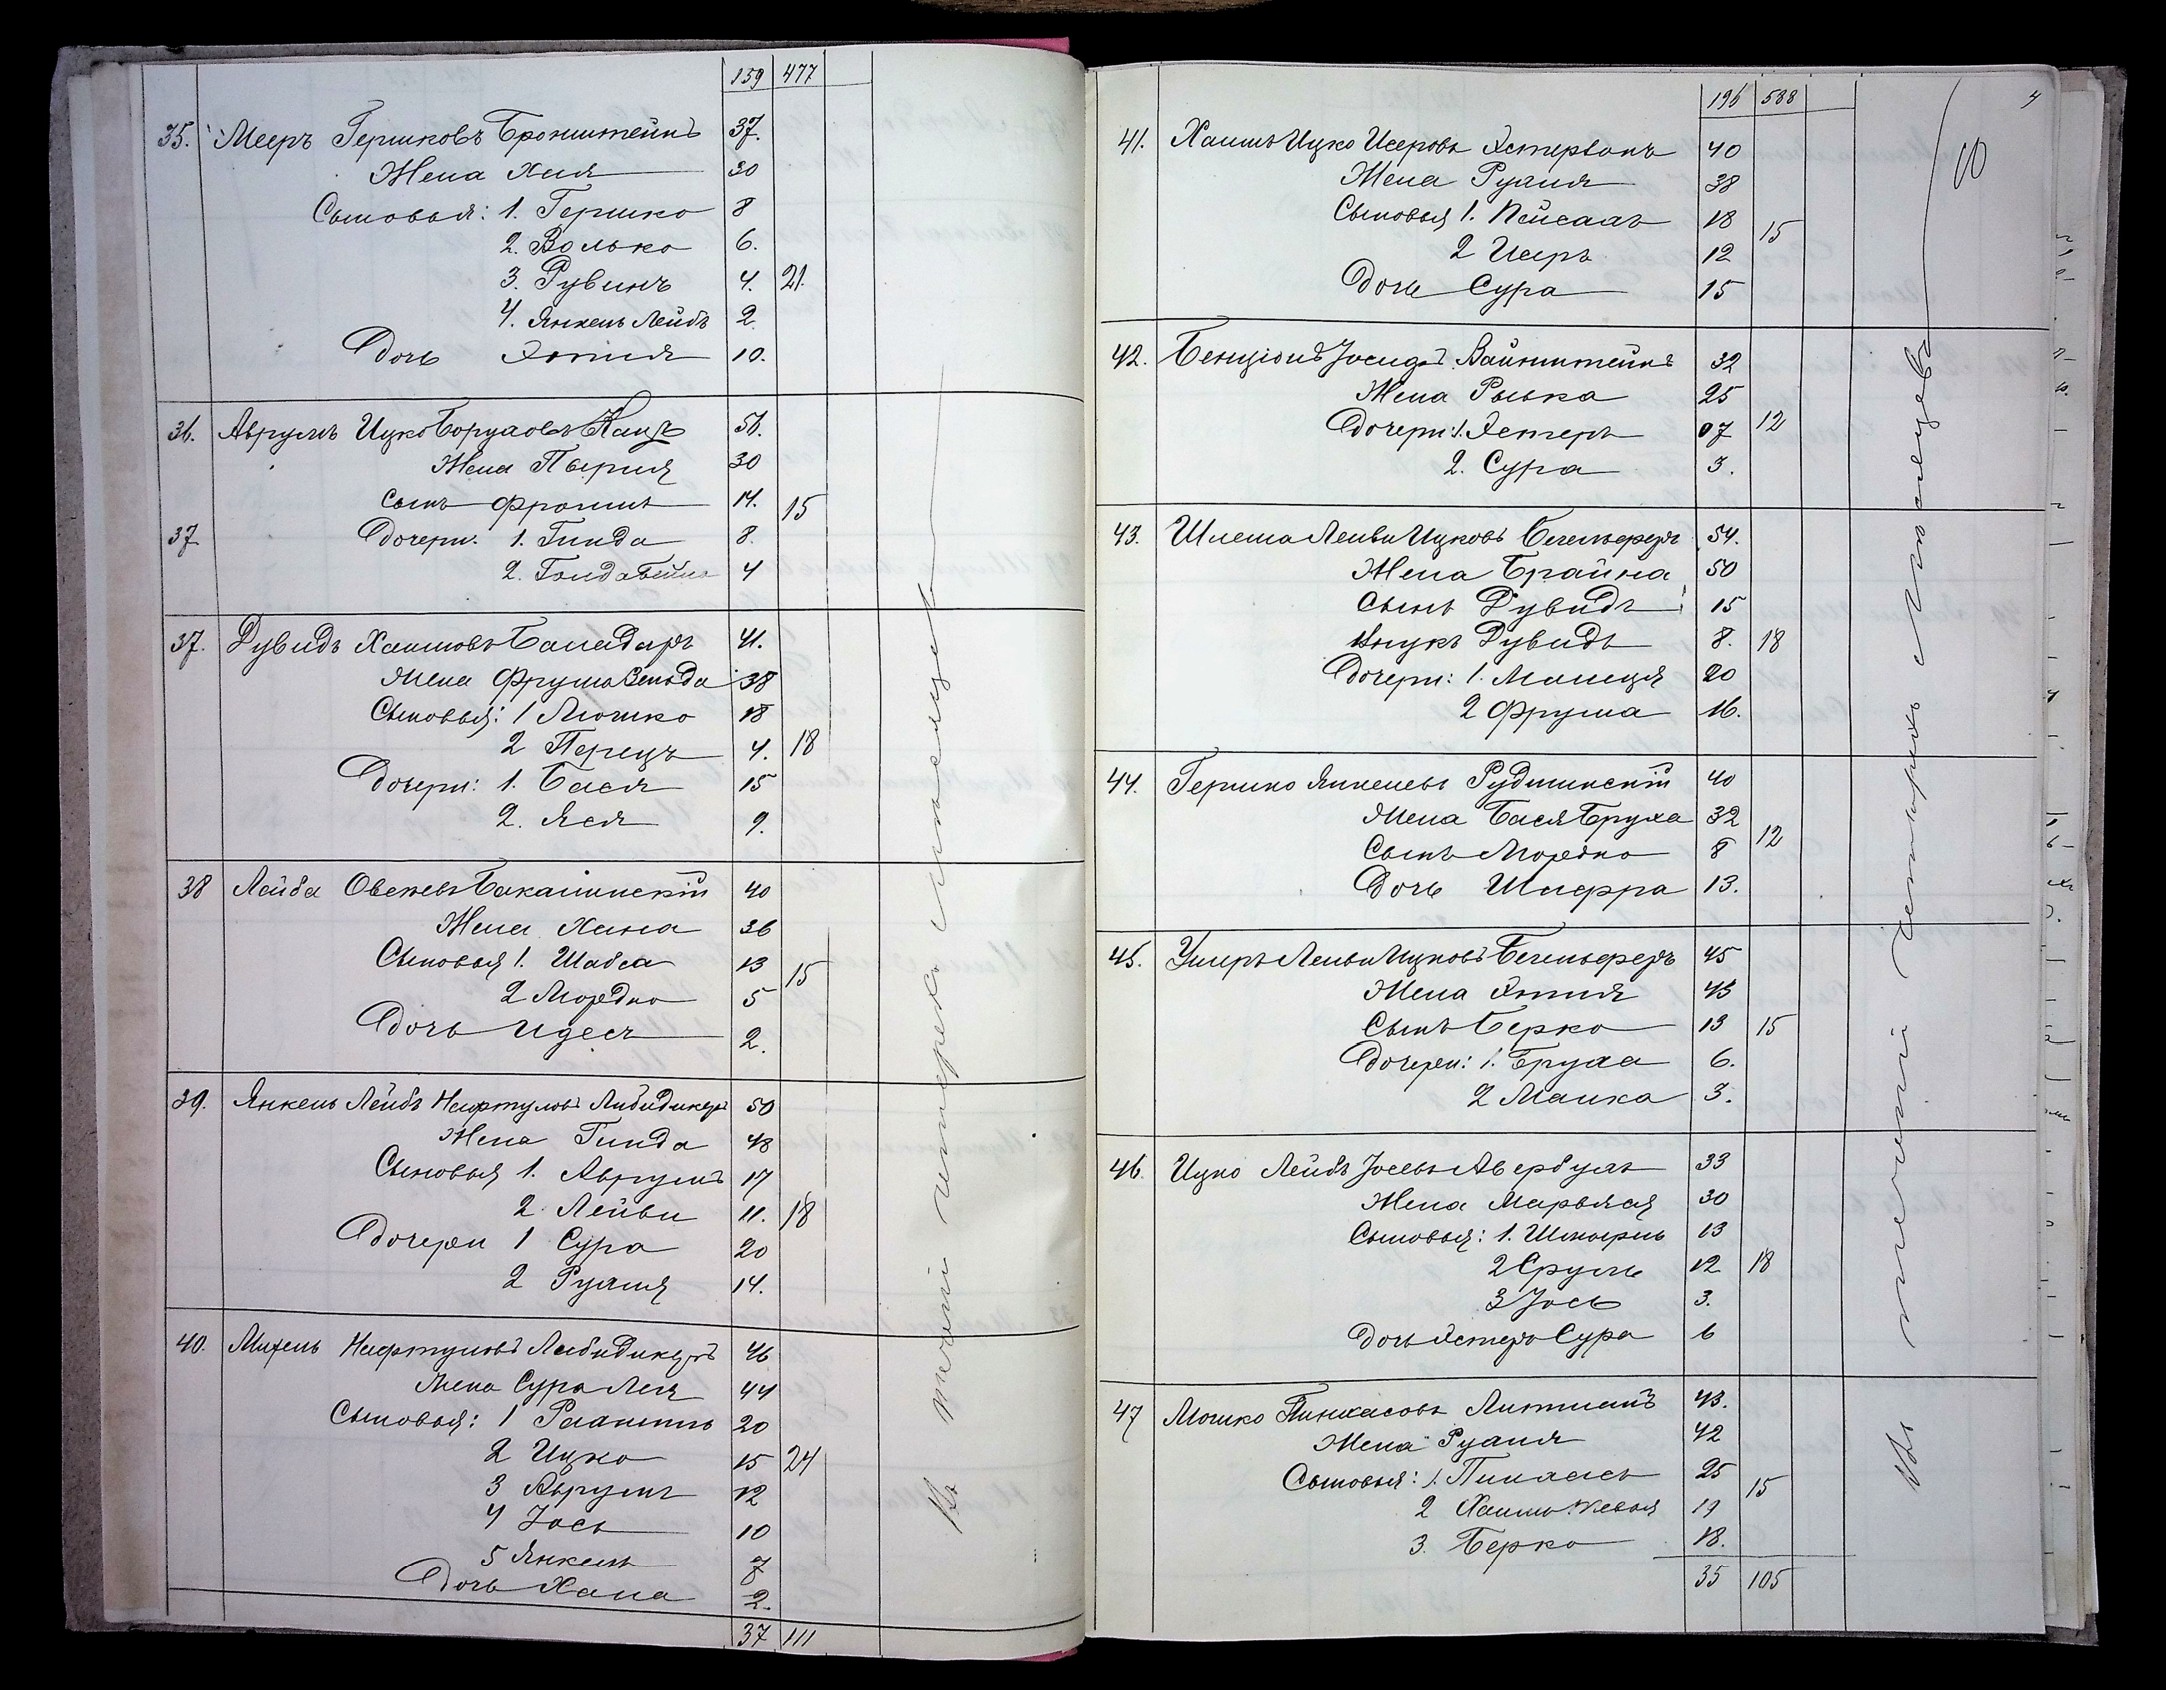 159 477
35. Мееръ Гершковъ Бронштейнъ 37.
Жена Хия 30
Сыновья: 1. Гершко 8
2. Волько 6.
3. Рувинъ 4. 21.
4. Янкель Лейбъ 2.
Дочь Этля 10.
36. Аврумъ Ицко Боруховъ Кацъ 56.
Жена Перля 30
Сынъ Фроимъ 14. 15
37 Дочери. 1. Гинда 8.
2. Голда Бейла 4
37. Дувидъ Хаимовъ Баладаръ 41.
Жена Фрума Зельда 38
Сыновья: 1 Мошко 18
2 Перецъ 4. 18
Дочери: 1. Бася 15
2. Яся 9.
38 Лейба Овсеевъ Бакалинскій 40
Жена Хана 36
Сыновья 1. Шабса 13 15
2 Мордко 5
Дочь Идесъ 2.
39. Янкель Лейбъ Нафтуловъ Либидикеръ 50
Жена Гинда 48
Сыновья 1. Аврумъ 17
2. Лейви 11. 18
Дочери 1 Сура 20
2 Рухля 14.
40. Михель Нафтуловъ Либидикеръ 46
Жена Сура Лея 44
Сыновья: 1 20
2 Ицко 15 24
3 Аврумъ 12
4 Іось 10
5 Янкель 7
Дочь Хана 2.
37 111
Въ теченіи четырехъ мѣсяцевъ
196 588
4
10
41. Хаимъ Ицко Исеровъ Эстерзонъ 40
Жена Рухля 38
Сыновья 1. Пейсахъ 18 15
2 Исеръ 12
Дочь Сура 15
42. Бенціонъ Іосифъ Вайнштейнъ 32
Жена Рывка 25
Дочери: 1. Эстеръ 07 12
2. Сура 3.
43. Шлема Лейви Ицковъ Бегельферъ 54.
Жена Брайна 50
Сынъ Дувидъ 15
Внукъ Дувидъ 8. 18
Дочери: 1. Малця 20
2 Фрума 16.
44. Гершко Янкелевъ Рудминскій 40
Жена Бася Бруха 32
Сынъ Мордко 8 12
Дочь Шифра 13.
45. Ушеръ Лейви Ицковъ Бегельферъ 45
Жена Этля 43
Сынъ Берко 13 15
Дочери: 1. Бруха 6.
2 Малка 3.
46. Ицко Лейбъ Іосевъ Авербухъ 33
Жена Марьяся 30
Сыновья: 1. 13
2 Сруль 12 18
3 Іось 3.
Дочь Эстеръ Сура 6
47 Мошко Пинхасовъ Литманъ 43.
Жена Рухля 42
Сыновья: 1. Пинхасъ 25 15
2 Хаимъ 19
3. Берко 18.
35 105
Въ теченіи четырехъ мѣсяцевъ